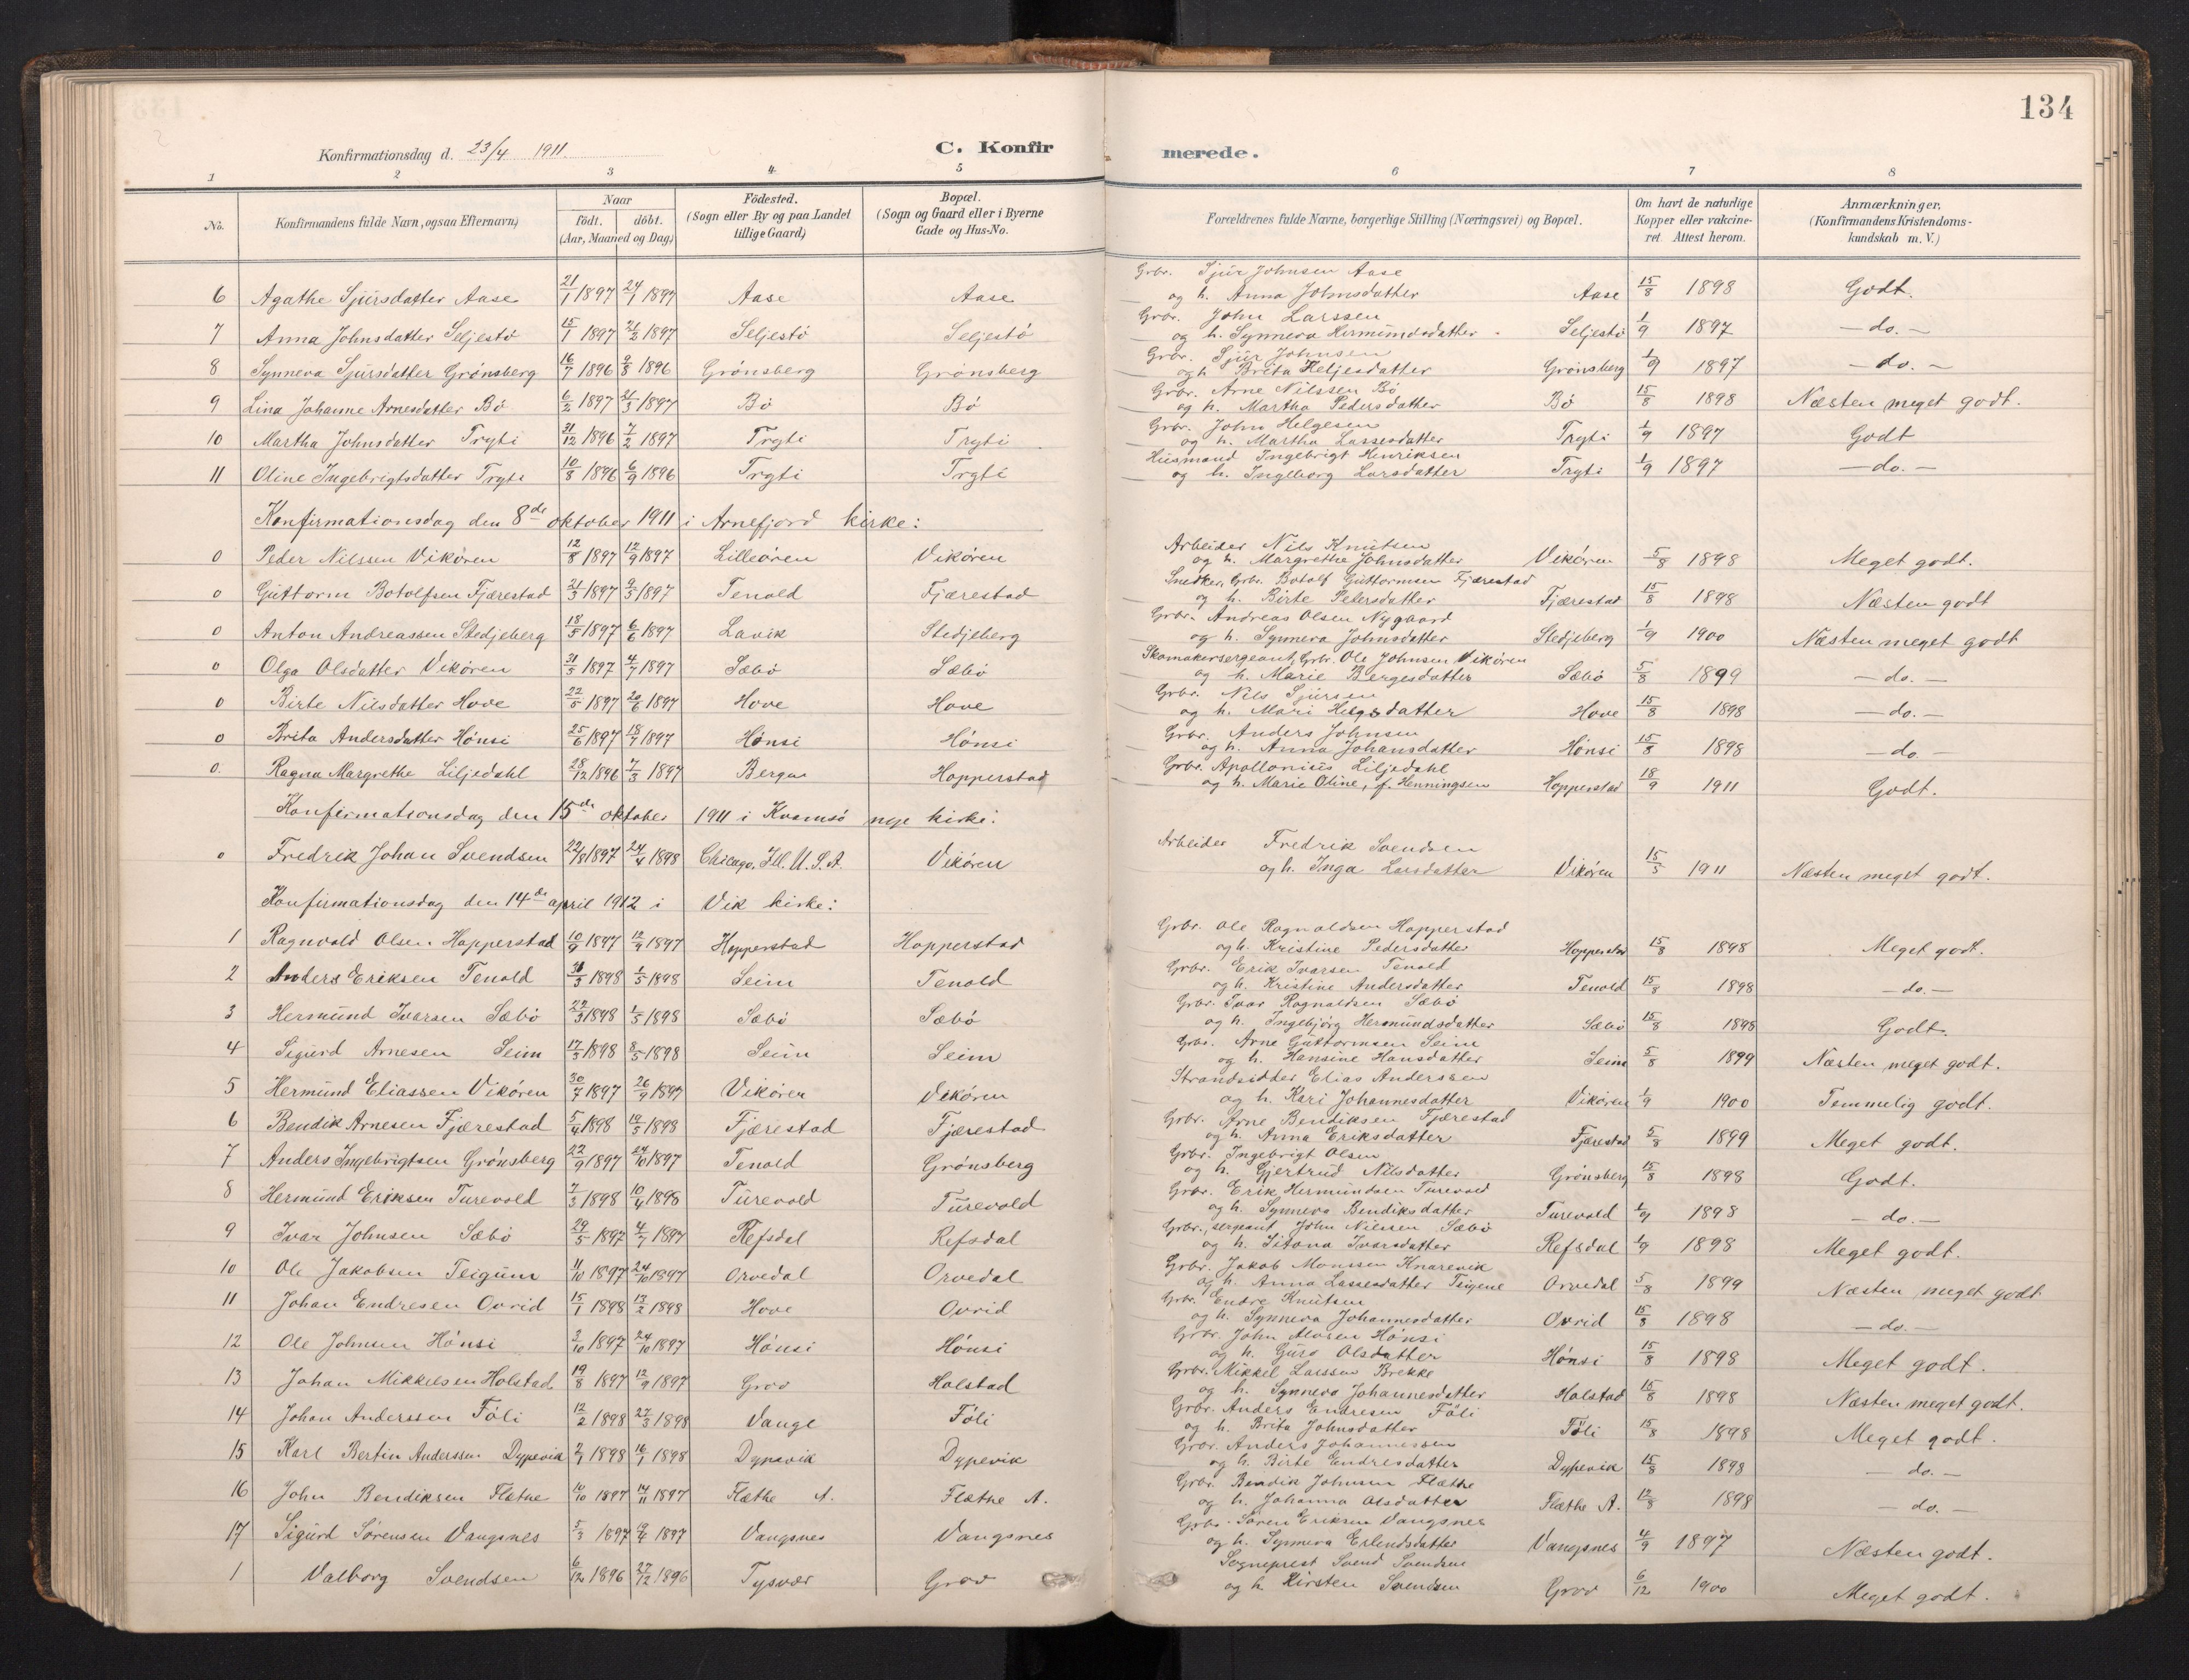 134
Konfirmationsdag d. 23/4 1911.
C. Konfirmerede.
1 2 3 4 5 6 7 8
No. Konfirmandens fulde Navn, ogsaa Efternavn) Naar födt. döbt. (Aar, Maaned og Dag.) Födested. (Sogn eller By og paa Landet tillige Gaard) Bopæl. (Sogn og Gaard eller i Byerne Gade og Hus-No. Forældrenes fulde Navne, borgerlige Stilling (Næringsvei) og Bopæl. Om havt de naturlige Kopper eller vakcineret. Attest herom. Anmærkninger. (Konfirmandens Kristendomskundskab m. V.)
6 Agathe Sjursdatter Aase 21/1 1897 24/1 1897 Aase Aase Grbr. Sjur Johnsen Aase og h. Anna Johnsdatter Aase 15/8 1898 Godt.
7 Anna Johnsdatter Seljestö 15/1 1897 21/2 1897 Seljestö Seljestö Grbr. John Larssen og h. Synneva Hermundsdatter Seljestö 1/9 1897 - do. -
8 Synneva Sjursdatter Grönsberg 16/7 1896 9/8 1896 Grönsberg Grönsberg Grbr. Sjur Johnsen og h. Brita Heljesdatter Grönsberg 1/9 1897 - do. -
9 Lina Johanne Arnesdatter Bö 6/2 1897 21/3 1897 Bö Bö Grbr. Arne Nilssen Bö og h. Martha Pedersdatter Bö 15/8 1898 Næsten meget godt.
10 Martha Johnsdatter Tryti 31/12 1896 7/2 1897 Tryti Tryti Grbr. John Helgesen og h. Martha Lassesdatter Tryti 1/9 1897 Godt
11 Oline Ingebrigtsdatter Tryti 10/8 1896 6/9 1896 Tryti Tryti Husmand Ingebrigt Henriksen og h. Ingeborg Larsdatter Tryti 1/9 1897 - do. -
Konfirmationsdag den 8de oktober 1911 i Arnefjord kirke:
0 Peder Nilssen Vikören 12/8 1897 12/9 1897 Lilleören Vikören Arbeider Nils Knutsen og h. Margrethe Johnsdatter Vikören 5/8 1898 Meget godt.
0 Guttorm Botolfsen Fjærestad 21/3 1897 9/5 1897 Tenold Fjærestad Snedker, Grbr. Botolf Guttormsen Fjærestad og h. Birte Petersdatter Fjærestad 15/8 1898 Næsten godt
0 Anton Andreassen Stedjeberg 18/5 1897 6/6 1897 Lavik Stedjeberg Grbr. Andreas Olsen Nygaard og h. Synneva Johnsdatter Stedjeberg 1/9 1900 Næsten meget godt
0 Olga Olsdatter Vikören 31/5 1897 4/7 1897 Sæbö Sæbö Skomakersergeant, Grbr. Ole Johnsen Vikören og h. Marie Bergesdatter Sæbö 5/8 1899 - do. -
0 Birte Nilsdatter Hove 22/5 1897 20/6 1897 Hove Hove Grbr. Nils Sjursen og h. Mari Helgesdatter Hove 15/8 1898 - do. -
0 Brita Andersdatter Hönsi 25/6 1897 18/7 1897 Hönsi Hönsi Grbr. Anders Johnsen og h. Anna Johansdatter Hönsi 15/8 1898 - do -
0. Ragna Margrethe Liljedahl 28/12 1896 7/3 1897 Bergen Hopperstad Grbr. Apollonius Liljedahl og h. Marie Oline, f. Henningsen Hopperstad 18/9 1911 Godt.
Konfirmationsdag den 15de oktober 1911 i Kvamsö nye kirke:
0 Fredrik Johan Svendsen 22/8 1897 24/4 1898 Chicago, Ill. U.S.A. Vikören Arbeider Fredrik Svendsen og h. Inga Larsdatter Vikören 15/5 1911 Næsten meget godt.
Konfirmationsdag den 14de april 1912 i Vik kirke:
1 Ragnvald Olsen Hopperstad 10/9 1897 12/9 1897 Hopperstad Hopperstad Grbr. Ole Ragnaldsen Hopperstad og h. Kristine Pedersdatter Hopperstad 15/8 1898 Meget godt.
2 Anders Eriksen Tenold 31/3 1898 1/5 1898 Seim Tenold Grbr. Erik Ivarsen Tenold og h. Kristine Andersdatter Tenold 15/8 1898 - do. -
3 Hermund Ivarsen Sæbö 22/3 1898 1/5 1898 Sæbö Sæbö Grbr. Ivar Ragnaldsen Sæbö og h. Ingebjörg Hermundsdatter Sæbö 15/8 1898 Godt.
4 Sigurd Arnesen Seim 17/3 1898 8/5 1898 Seim Seim Grbr. Arne Guttormsen Seim og h. Hansine Hansdatter Seim 5/8 1899 Næsten meget godt.
5 Hermund Eliassen Vikören 30/7 1897 26/9 1897 Vikören Vikören Strandsidder Elias Anderssen og h. Kari Johannesdatter Vikören 1/9 1900 Temmelig godt.
6 Bendik Arnesen Fjærestad 5/4 1898 19/5 1898 Fjærestad Fjærestad Grbr. Arne Bendiksen Fjærestad og h. Anna Eriksdatter Fjærestad 5/8 1899 Meget godt.
7 Anders Ingebrigtsen Grönsberg 22/9 1897 24/10 1897 Tenold Grönsberg Grbr. Ingebrigt Olsen og h. Gjertrud Nilsdatter Grönsberg 15/8 1898 Godt.
8 Hermund Eriksen Turevold 7/3 1898 10/4 1898 Turevold Turevold Grbr. Erik Hermundsen Turevold og h. Synneva Bendiksdatter Turevold 1/9 1898 - do. -
9 Ivar Johnsen Sæbö 29/5 1897 4/7 1897 Refsdal Refsdal Grbr., sergeant John Nilssen Sæbö og h. Ivarsdatter Refsdal 1/9 1898 Meget godt.
10 Ole Jakobsen Teigum 11/10 1897 24/10 1897 Orvedal Orvedal Grbr. Jakob Monssen Knarevik og h. Anna Lassesdatter Orvedal 5/8 1899 Næsten meget godt
11 Johan Endresen Ovrid 15/1 1898 13/2 1898 Hove Ovrid Grbr. Endre Knutsen og h. Synneva Johannesdatter Ovrid 15/8 1898 - do. -
12 Ole Johnsen Hönsi 3/10 1897 24/10 1897 Hönsi Hönsi Grbr. John Hönsi og h. Guro Olsdatter Hönsi 15/8 1898 Meget godt.
13 Johan Mikkelsen Holstad 19/8 1897 12/9 1897 Grov Holstad Grbr. Mikkel Larssen Brekke og h. Synneva Johannesdatter Holstad 15/8 1898 Næsten meget godt.
14 Johan Anderssen Föli 12/2 1898 27/3 1898 Vange Föli Grbr. Anders Endresen Föli og h. Brita Johnsdatter Föli 15/8 1898 Meget godt.
15 Karl Bertin Anderssen Dypevik 2/1 1898 16/1 1898 Dypevik Dypevik Grbr. Anders Johannessen og h. Birte Endresdatter Dypevik 15/8 1898 - do. -
16 John Bendiksen Flæthe 10/10 1897 14/11 1897 Flæthe A. Flæthe A. Grbr. Bendik Johnsen Flæthe og h. Johanna Olsdatter Flæthe A. 12/8 1898 - do. -
17 Sigurd Sørensen Vangsnes 5/3 1897 19/4 1897 Vangsnes Vangsnes Grbr. Søren Eriksen Vangsnes og h. Synneva Erlendsdatter Vangsnes 4/9 1897 Næsten godt.
1 Valborg Svendsen 6/12 1896 27/12 1896 Tysvær Grov Sogneprest Svend Svendsen og h. Kirsten Svendsen Grov 6/12 1900 Meget godt.